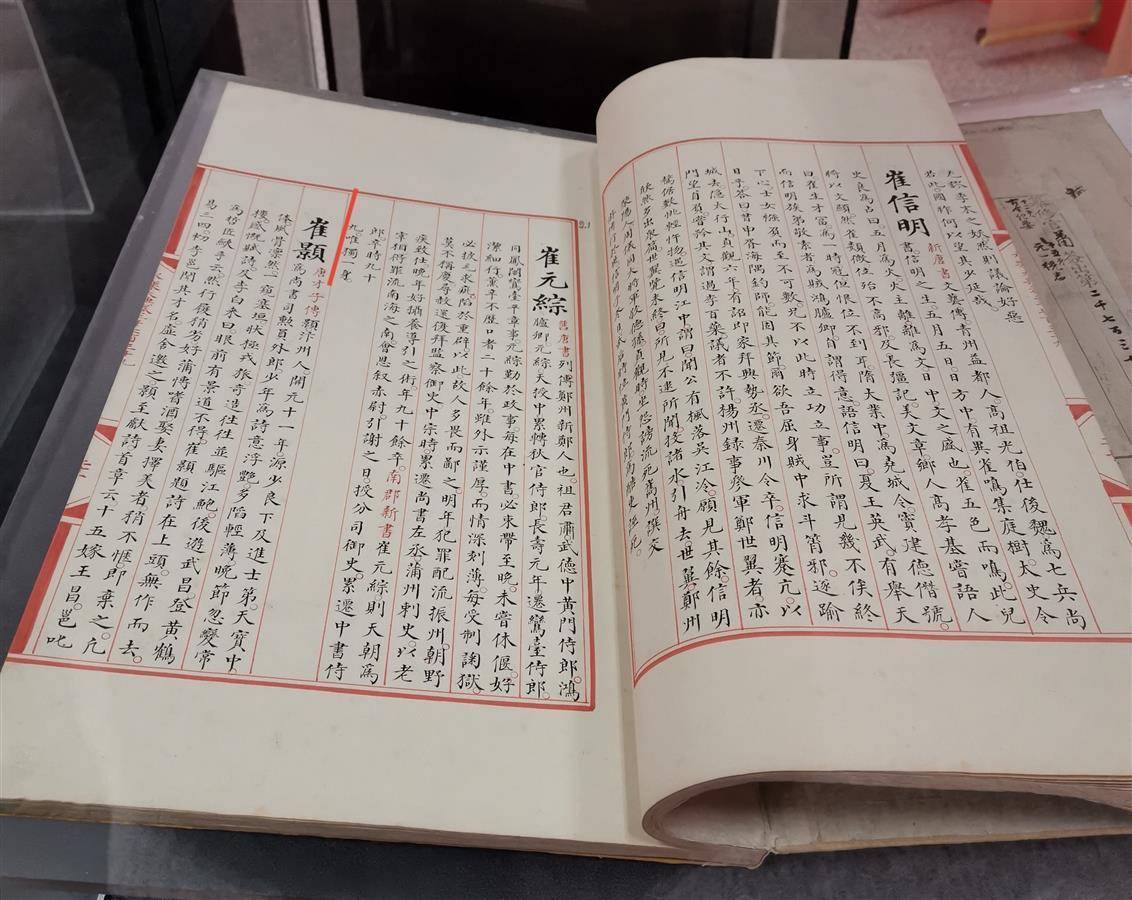 則議論好惡
崔信明
新唐書文藝傳青州益都人高祖光伯仕後魏為七兵尚
書信明之生五月五日日方中有異雀鳴集庭樹太史令
史良為占曰五月為火火主離離為文日中文之盛也雀五色而鳴此兒
將以文顯然雀類微位殆不高邪及長彊記美文章鄉人高孝基嘗語人
曰崔生才富為一時冠但恨位不到耳隋大業中為堯城令竇建德僭號
而信明族弟敬素者為賊鴻臚卿自謂得意語信明曰夏王英武有舉天
下心士女襁負而至不可數兄不以此時立功立事豈所謂見幾不俟終
日乎荅曰昔申胥海隅釣師能固其節爾欲吾屈身賊中求斗筲邪遂踰
城去隱太行山貞觀六年有詔即家拜興勢丞遷秦川令卒信明蹇亢以
門望自負嘗矜其文謂過李百藥議者不許楊州録事參軍鄭世翼者亦
驁倨數佻輕忤物遇信明江中謂曰聞公有楓落吳江冷願見其餘信明
欣然多出衆篇世翼覽未終曰所見不逮所聞投諸水引舟去世翼鄭州
滎陽人周儀同大將軍敬德孫貞觀時坐怨謗流死巂州撰交
崔元綜
舊唐書列傳鄭州新鄭人也祖君肅武德中黄門侍郎鴻
臚卿元綜天授中累轉秋官侍郎長壽元年遷鸞臺侍郎
同鳳閣鸞臺平章事元綜勤於政事每在中書必束帶至晚未嘗休偃好
潔細行薰辛不歷口者二十餘年雖外示謹厚而情深刻薄每受制鞫獄
必披毛求疵陷於重辟以此故人多畏而鄙之明年犯罪配流振州朝野
莫不稱慶尋赦還復拜監察御史中宗時累遷尚書左丞蒲州刺史以老
疾致仕晚年好攝養導引之術年九十餘卒南郡新書崔元綜則天朝為
宰相得罪流南海之南會恩叙赤尉引謝之日授分司御史累遷中書侍
郎卒時九十
九唯獨一身
崔顥
唐才子傳顥汴州人開元十一年源少良下及進士第天寳中
為尚書司勲員外郎少年為詩意浮艷多陷輕薄晚節忽變常
體風骨凛然一窺塞垣狀極戎旅奇造往往並驅江鮑後遊武昌登黄鶴
樓感慨賦詩及李白来曰眼前有景道不得崔顥題詩在上頭無作而去
為哲匠歛手云然行履稍劣好蒱博嗜酒娶妻擇美者稍不愜即棄之凡
易三四初李邕聞其才名虚舍邀之顥至獻詩首章云十五嫁王昌邕叱